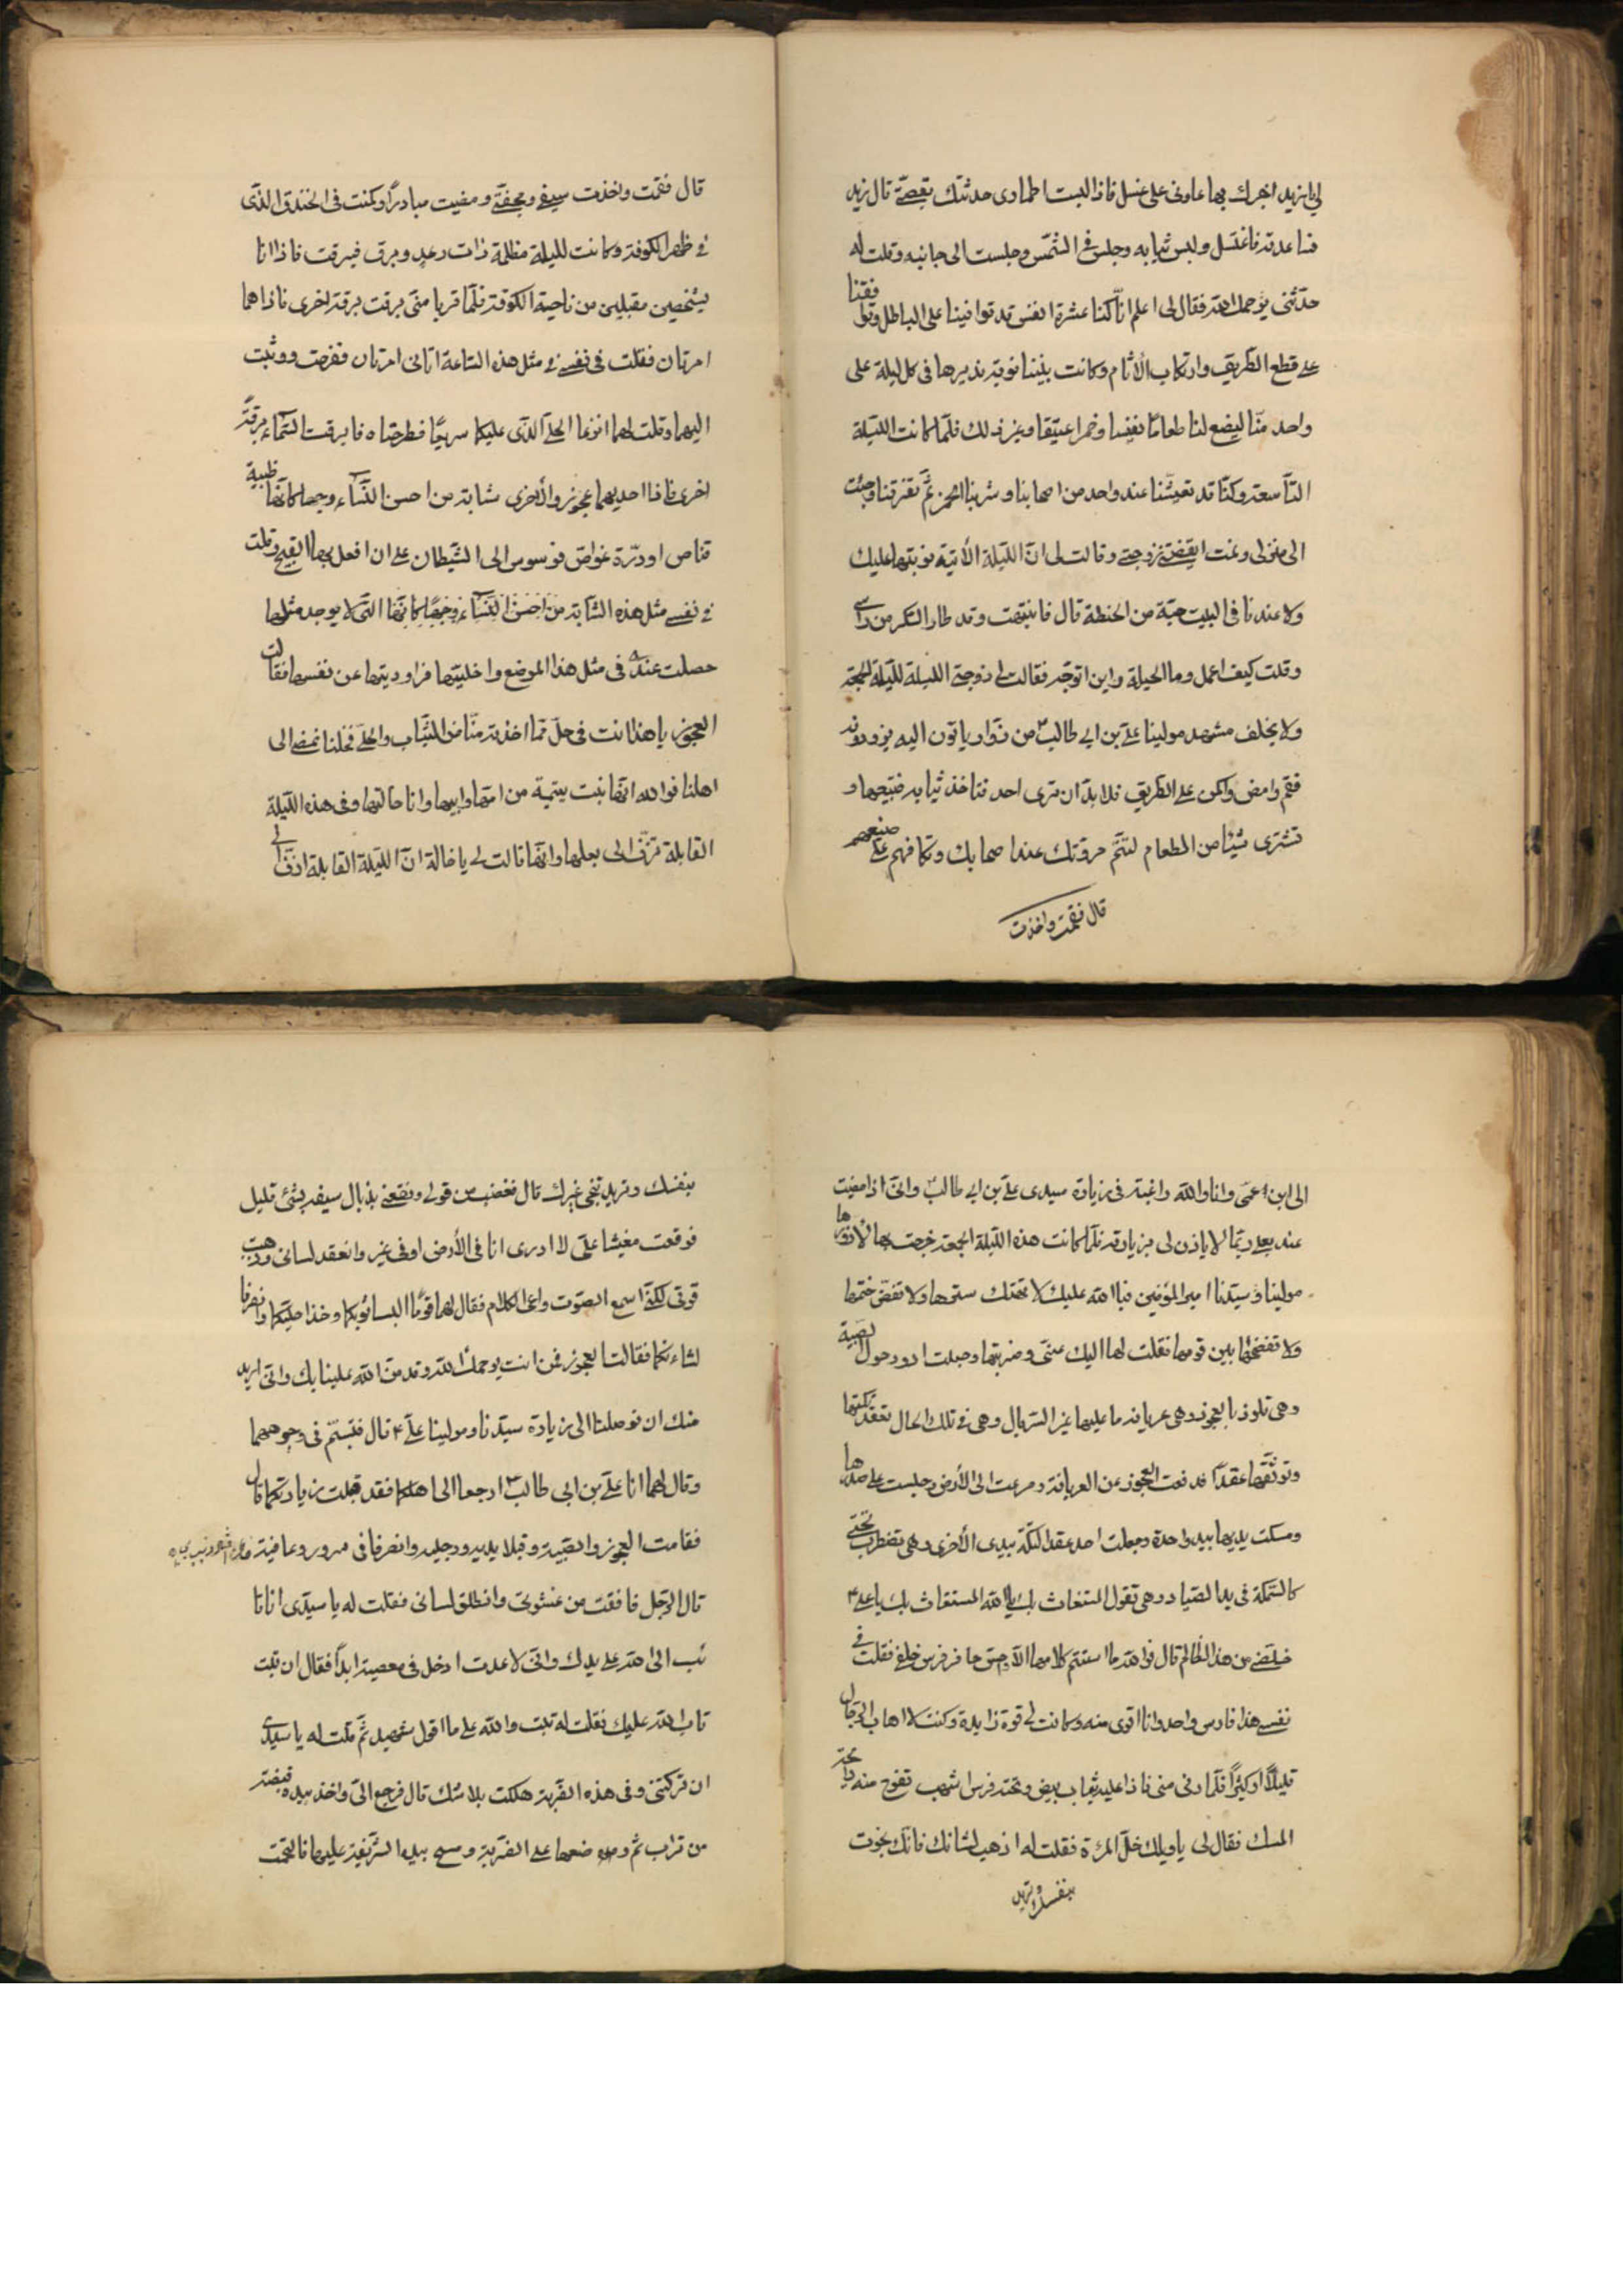 لی یا زید اخبرك بها عاونی علی غسل فاذا لبست اطماری حدثتك بقصّتی قال زید
فساعدته فاغتسل ولبس ثیابه وجلس فی الشمس وجلست الی جانبه وقلت له
حدّثنی یرحمك الله فقال لی اعلم انّا كنّا عشرة انفس قد تواخینا علی الباطل وتوافقنا
علی قطع الطّریق وارتكاب الآثام وكانت بیننا نوبة ندیرها فی كل لیلة علی
واحد منّا لیضع لنا طعامًا نفیسا وخمرا عتیقا وغیر ذلك فلمّا كانت اللّیلة
التّاسعة وكنّا قد تعیشنا عند واحد من اصحابنا وشربنا الخمر ثمّ تفرّقنا وجئت
الی منزلی ونمت ایقضتنی زوجتی وقالت لی انّ اللّیلة الآتیة نوبتها علیك
ولا عندنا فی البیت حبّة من الحنطة قال فانتبهت وقد طار السّكر من راسی
وقلت كیف اعمل وما الحیلة واین اتوجّه فقالت لی زوجتی اللیلة للیلة الجمعة
ولا یخلف مشهد مولینا علی بن ابی طالبٍ من زوّار یاتون الیه یزورونه
فقم وامض واكمن علی الطّریق فلا بدّ ان تری احد فتاخذ ثیابه فتبیعها و
تشتری شیئا من الطعام لتتمّ مروّتك عند اصحابك وتكافیهم علی صنیعهم
قال فقمت واخذت
قال فقمت واخذت سیفی وجحفتی ومضیت مبادرًا وكمنت فی الخندق الذی
فی ظهر الكوفة وكانت للیلة مظلمة ذات رعدٍ وبرق فبرقت فاذا انا
بشخصین مقبلین من ناحیة الكوفة فلمّا قربا منّی برقت برقة اخری فاذا هما
امرتان فقلت فی نفسی فی مثل هذه السّاعة اتانی امرتان ففرحت ووثبت
الیهما وقلت لهما انزعا الحلی الذی علیكما سریعًا فطرحتاه فابرقت السّماء برقةً
اخری فاذا احدیهما عجوز والأخری شابة من احسن النّساء وجها كانّها ظبیة
قناص او درّة غوّاص فوسوس الی الشّیطان علی ان افعل بها القبیح وقلت
فی نفسی مثل هذه الشّابة من احسن النّساء وجهًا كانّها التی لا یوجد مثلها
حصلت عندی فی مثل هذا الموضع واخلیتها فراودتها عن نفسها فقالت
العجوز یا هذا انت فی حلّ ممّا اخذته منّا من الثّیاب والحلی فخلّنا نمضی الی
اهلنا فوالله انّها بنت یتیمة من امّها وابیها وانا خالتها وفی هذه اللّیلة
القابلة تزفّ الی بعلها وانّها قالت لی یا خالة انّ اللّیلة القابلة ازفّ
الی ابن عمّی وانا والله راغبة فی زیارة سیدی علی بن ابی طالبٍ وانّی اذا مضیت
عند بعلی ربّما لا یاذن لی بزیارته فلمّا كانت هذه اللّیلة الجمعة خرجت بها لأزوّرها
مولینا وسیّدنا امیر المؤمنین فبالله علیك لا تهتك سترها ولا تفضّ ختمها
ولا تفضحها بین قومها فقلت لها الیك عنّی وضربتها وجعلت ادور حول الصبیة
وهی تلوذ بالعجوز وهی عریانة ما علیها غیر السّربال وهی فی تلك الحال تعقد تكّتها
وتوثقها عقدًا فدفعت العجوز عن العریانة وصرعت الی الأرض وجلست علی صدرها
ومسكت یدیها بید واحدة وجعلت احد عقد التكّة بیدی الأخری وهی تضطرب تحتی
كالسّمكة فی ید الصّیاد وهی تقول المستغاث بك یا الله المستغاث بك یا علی
خلّصنی من هذا الظّالم قال فوالله ما استتم كلامها الّا وحسّ حافر فرس خلفی فقلت فی
نفسی هذا فارس واحد وانا اقوی منه وكانت لی قوة زایدة وكنت لا اهاب الرّجال
قلیلًا او كثیرًا فلمّا دنی منی فاذا علیه ثیاب بیض وتحته فرس اشهب تفوح منه رائحة
المسك فقال لی یا ویلك خلّ المرءة فقلت له اذهب لشانك فانّك نجوت
بنفسك وترید
بنفسك وترید تنجی غیرك قال فغضب من قولی ونفحنی بذبال سیفه بشیء قلیل
فوقعت مغشیا علی لا ادری انا فی الأرض او فی غیر وانعقد لسانی وذهبت
قوتی لكنّی اسمع الصّوت واعی الكلام فقال لهما قوما البسا ثیابكما وخذا حلیّكما وانصرفا
لشانكما فقالت العجوز فمن انت یرحمك الله وقد منّ الله علینا بك وانّی ارید
منك ان توصلنا الی زیارة سیدنا ومولینا علی ٤ قال فتبسّم فی وجوههما
وقال لهما انا علی بن ابی طالبٍ ارجعا الی اهلكما فقد قبلت زیارتكما قال
فقامت العجوز والصّبیة وقبلا یدیه ورجلیه وانصرفا فی سرور وعافیة
قال الرّجل فافقت من غشوتی وانطلق لسانی فقلت له یا سیدی انا تا
ئب الی الله علی یدك وانّی لا عدت ادخل فی معصیة ابدًا فقال ان تبت
تاب الله علیك فقلت له تبت والله علی ما اقول شهید ثمّ قلت له یا سیدی
ان تركتنی وفی هذه الضّربة هلكت بلا شك قال فرجع الیّ واخذ بیده قبضة
من تراب ثمّ وضعها علی الضّربة ومسح بیده الشّریفة علیها فالتحمت